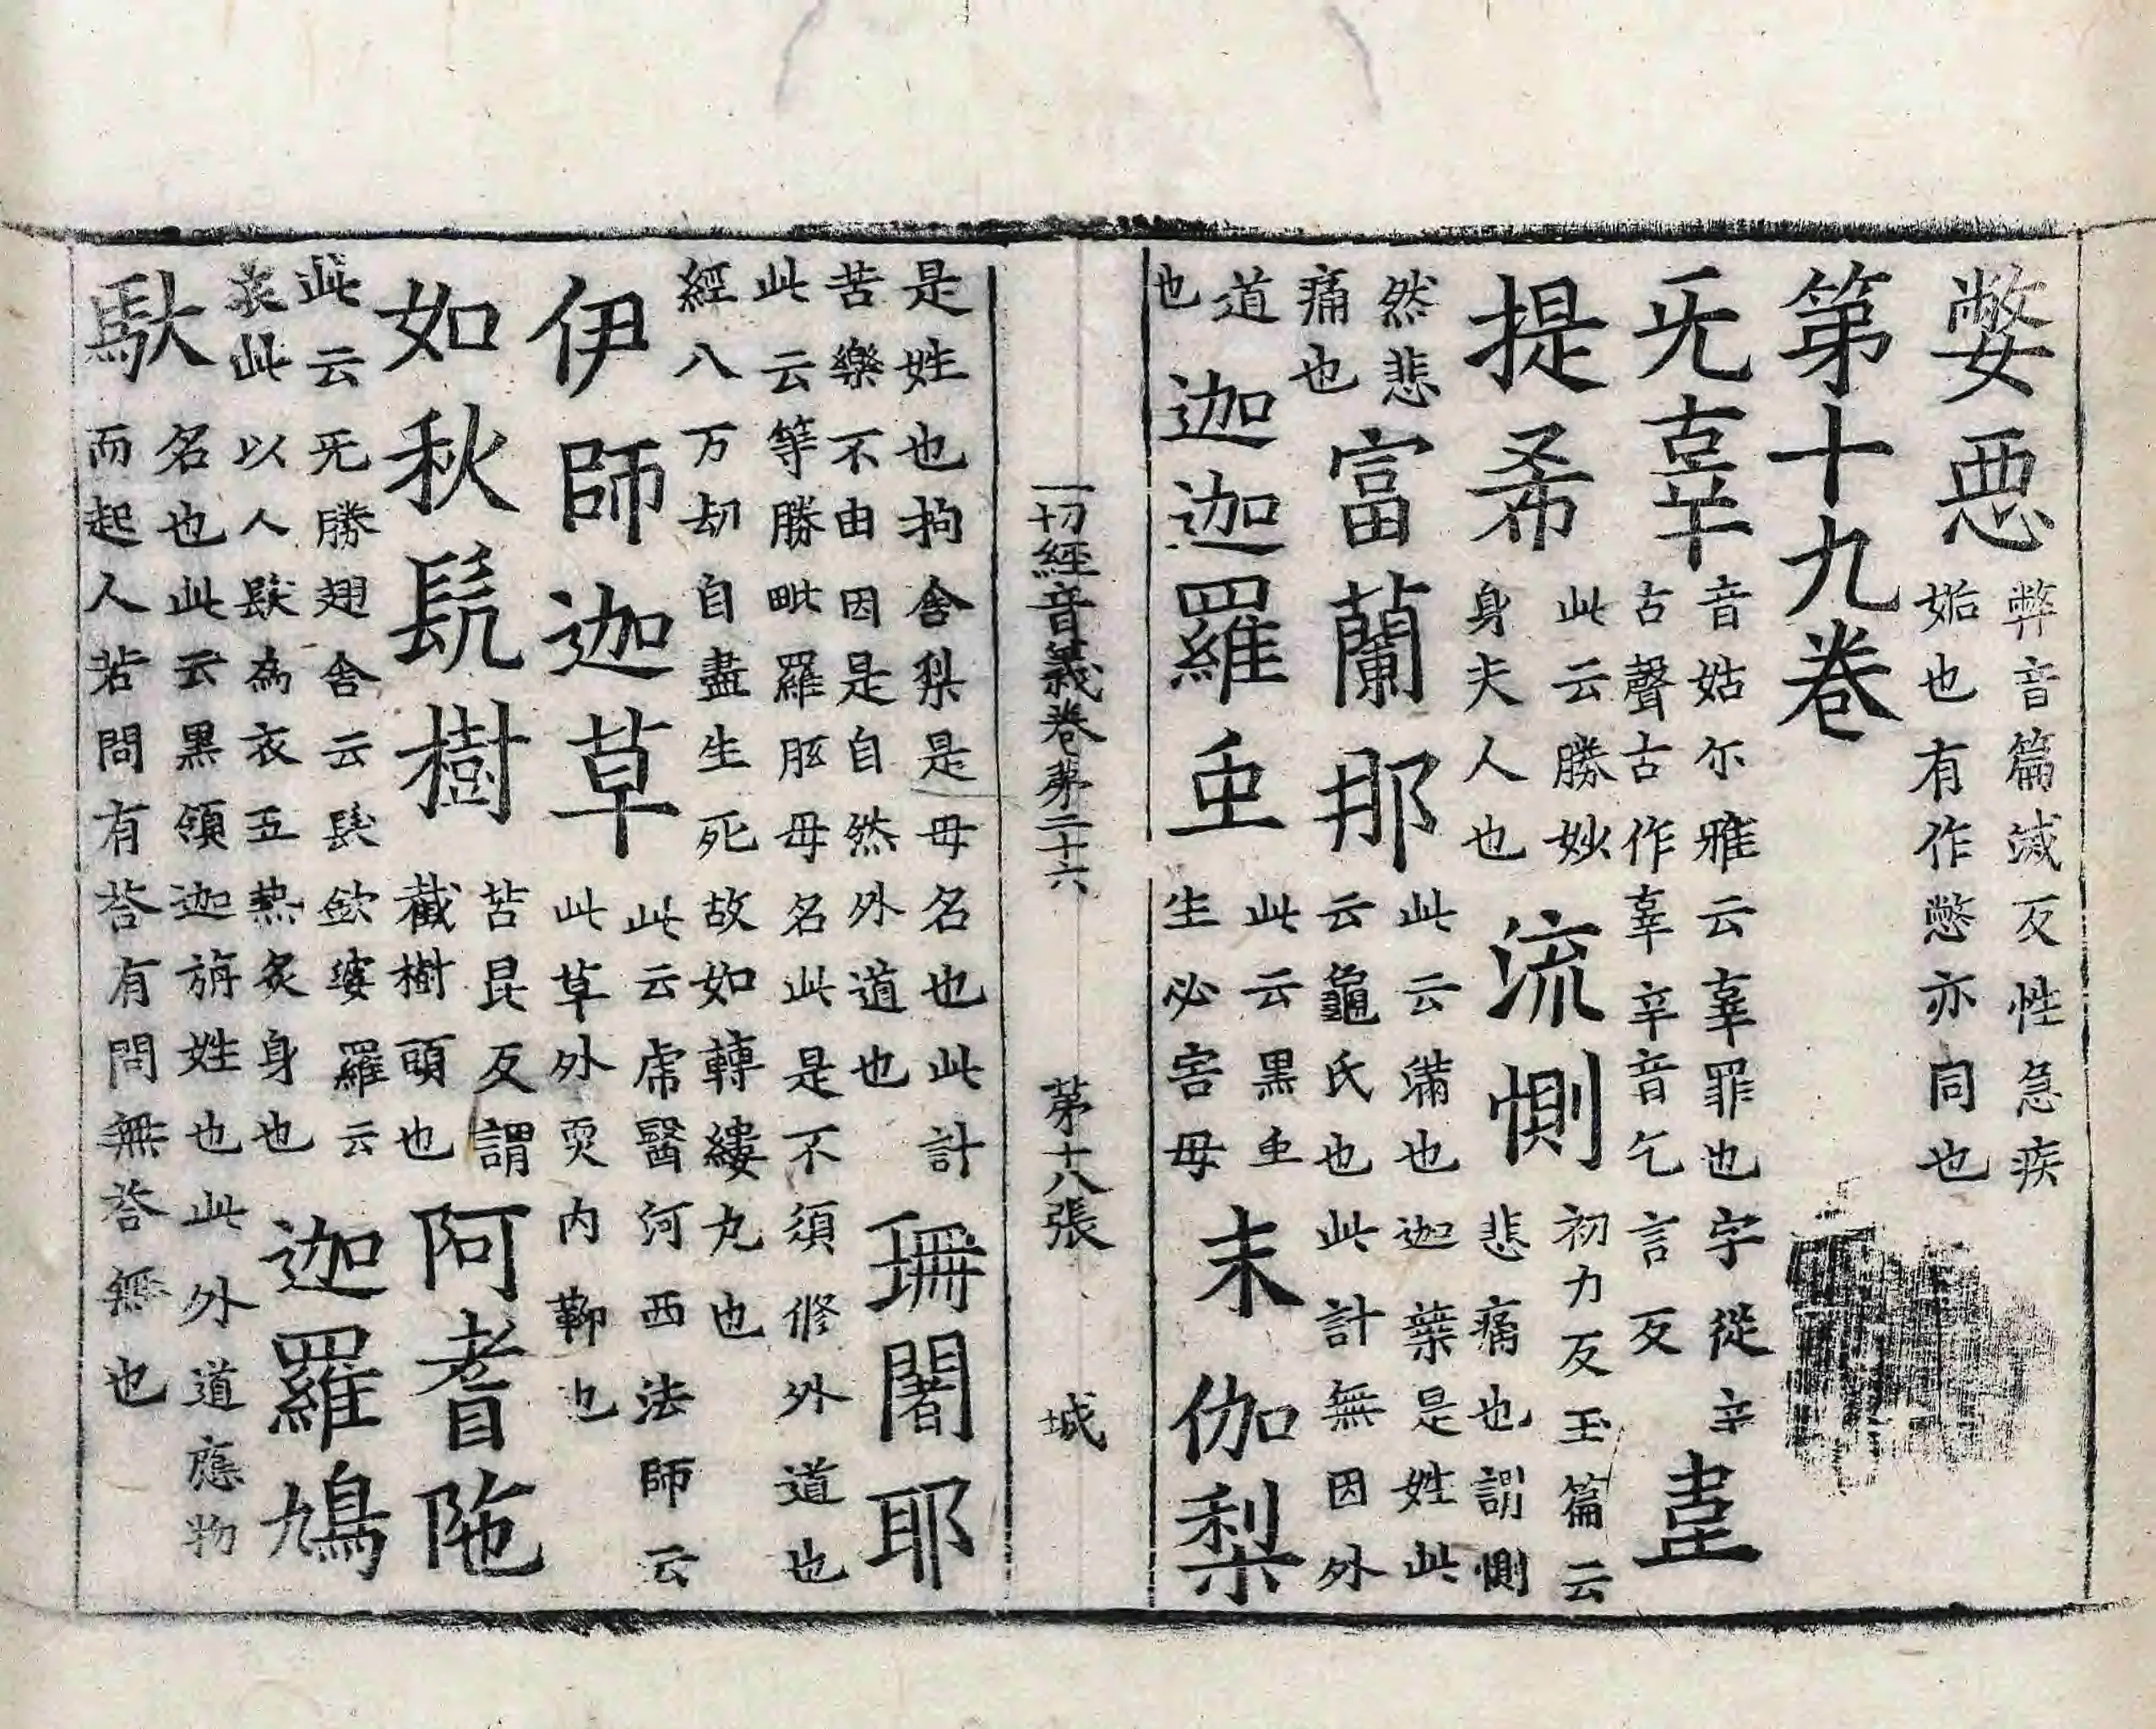 嫳惡 弊音篇滅反性急疾
妬也有作憋亦同也
第十九卷
无辜 音姑尒雅云辜罪也字從辛
古聲古作辜辛音乞言反 韋
提希 此云勝妙
身夫人也 流惻 初力反玉篇云
悲痛也謂惻
然悲
痛也 富蘭那 此云滿也迦葉是姓此
云龜氏也此計無因外
道
也 迦迦羅虫 此云黑虫
生必害母 末伽梨
一切經音義卷第二十六 第十八張 城
是姓也拘舍梨是母名也此計
苦樂不由因是自然外道也 珊闍耶
此云等勝毗羅胝母名此是不須修外道也
經八万劫自盡生死故如轉縷丸也
伊師迦草 此云虎醫河西法師云
此草外耎内鞕也
如秋髡樹 苦昆反謂
截樹頭也 阿耆陁
此云无勝翅舍云髮欽婆羅云
衣此以人髮為衣五熱炙身也 迦羅鳩
馱 名也此云黑領迦旃姓也此外道應物
而起人若問有荅有問無荅無也